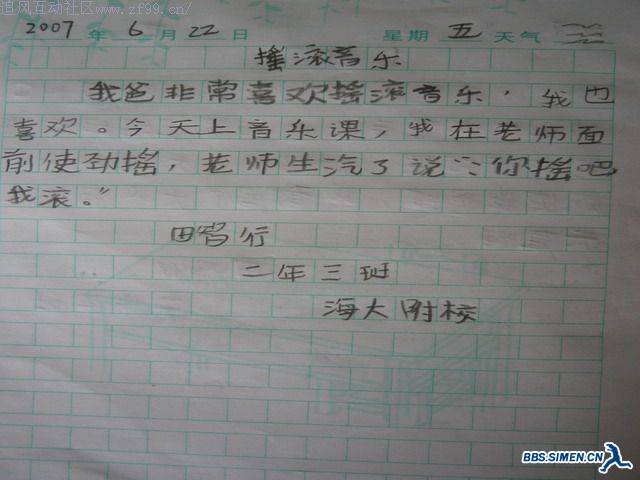 追风互动社区www.zf99.cn/
2007 年 6 月 22 日 星期 五 天气
摇滚音乐
我爸非常喜欢摇滚音乐，我也
喜欢。今天上音乐课，我在老师面
前使劲摇，老师生汽了说：“你摇吧
我滚。”
田智行
二年三班
海大附校
BBS.SIMEN.CN